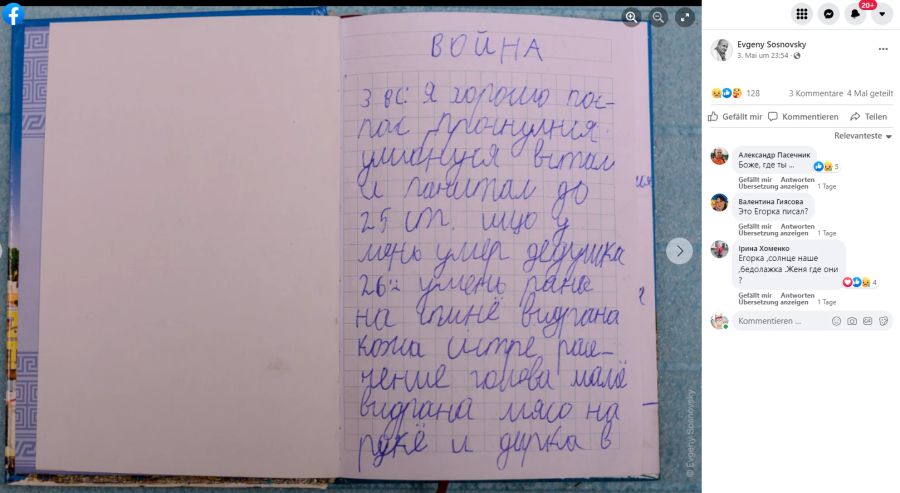 ВОЙНА
я хорошо пос-
пал, проснулися
улибнулся встал
и почитал до
25 ст. ищо у
мень умер дедушка
26 умень рана
на спинё видрана
кожа
чение голова
видрана мясо на
рукё и дирка в
© Evgeny Sosnovsky
20+
Evgeny Sosnovsky
3. Mai um 23:54 ·
128
3 Kommentare 4 Mal geteilt
Gefällt mir Kommentieren Teilen
Relevanteste
Александр Пасечник
Боже, где ты ...
5
Gefällt mir Antworten
Übersetzung anzeigen 1 Tage
Валентина Гиясова
Это Егорка писал?
Gefällt mir Antworten
Übersetzung anzeigen 1 Tage
Ірина Хоменко
Егорка ,солнце наше
,бедолажка .Женя где они
?
4
Gefällt mir Antworten
Übersetzung anzeigen 1 Tage
Kommentieren ...